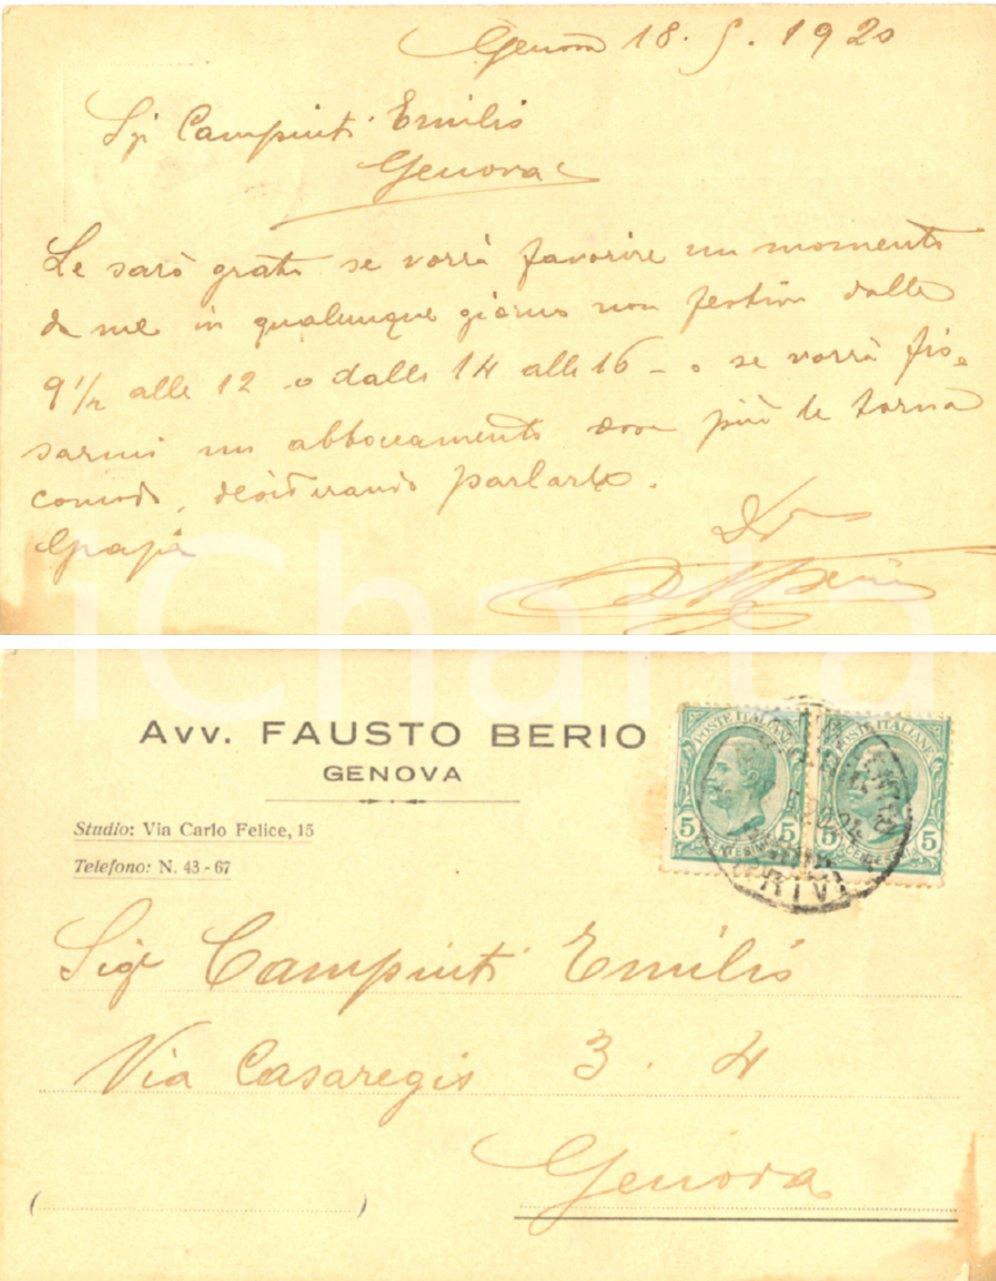 Genova 18. 5. 1920
Sigr Campinti Emilio
Genova
Le sarò grato se vorrà favorire un momento
da me in qualunque giorno non festivo dalle
9 1/2 alle 12 o dalle 14 alle 16 - o se vorrà fis=
sarmi un abboccamento dove più le torna
comodo, desiderando parlarle.
Grazie
iCharta
Avv. FAUSTO BERIO
GENOVA
Studio: Via Carlo Felice, 15
Telefono: N. 43 - 67
POSTE ITALIANE
5 5
CENTESIMI
POSTE ITALIANE
5 5
ARRIVI
Sigr Campinti Emilio
Via Casaregis 3 . 4
Genova
( )